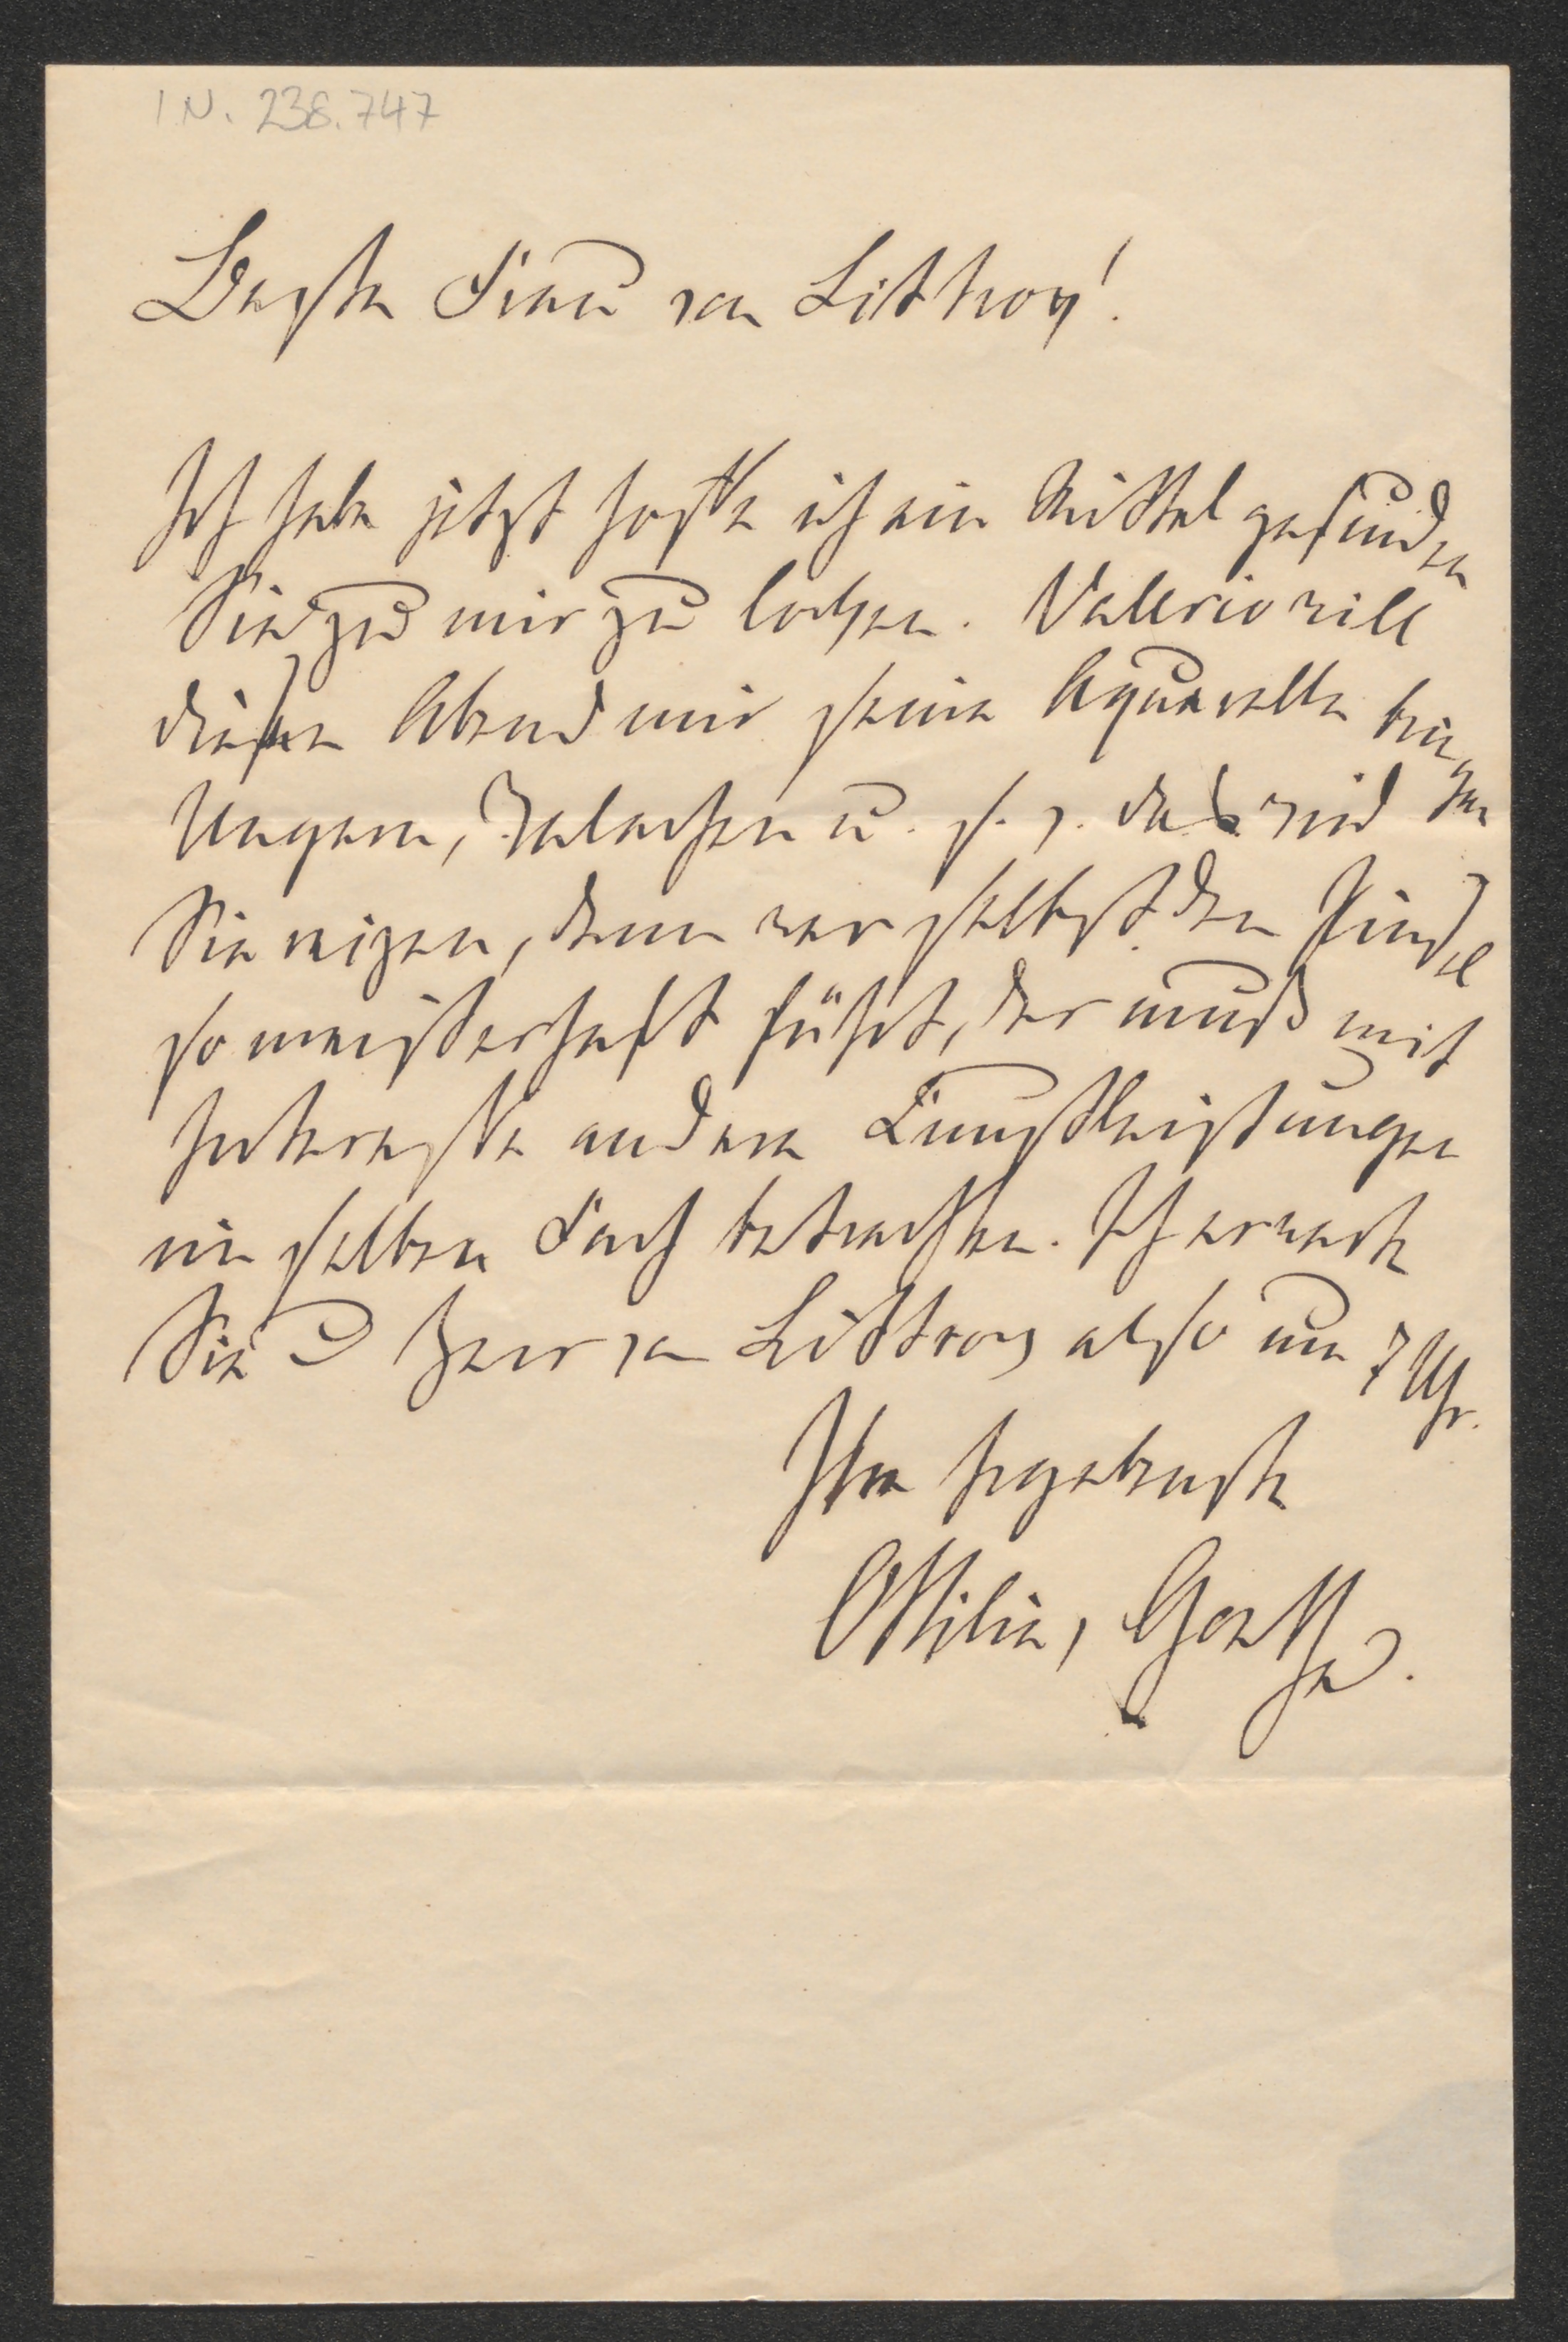 I N. 238.747
Beste Frau von Littrow!
Ich habe jetzt hoffe ich ein Mittel gefunden
Sie zu mir zu locken. Valerio will
diesen Abend mir seine Aquarelle bringen
Ungarn, Walachen u. s. w. das wird
Sie reizen, denn wer selbst den Pinsel
so meisterhaft führt, der muß mit
Interesse andere Kunstleistungen
im selben Fach betrachten. Ich erwarte
Sie u Herr von Littrow also um 7 Uhr.
Ihre Ergebenste
Ottilie, Goethe.